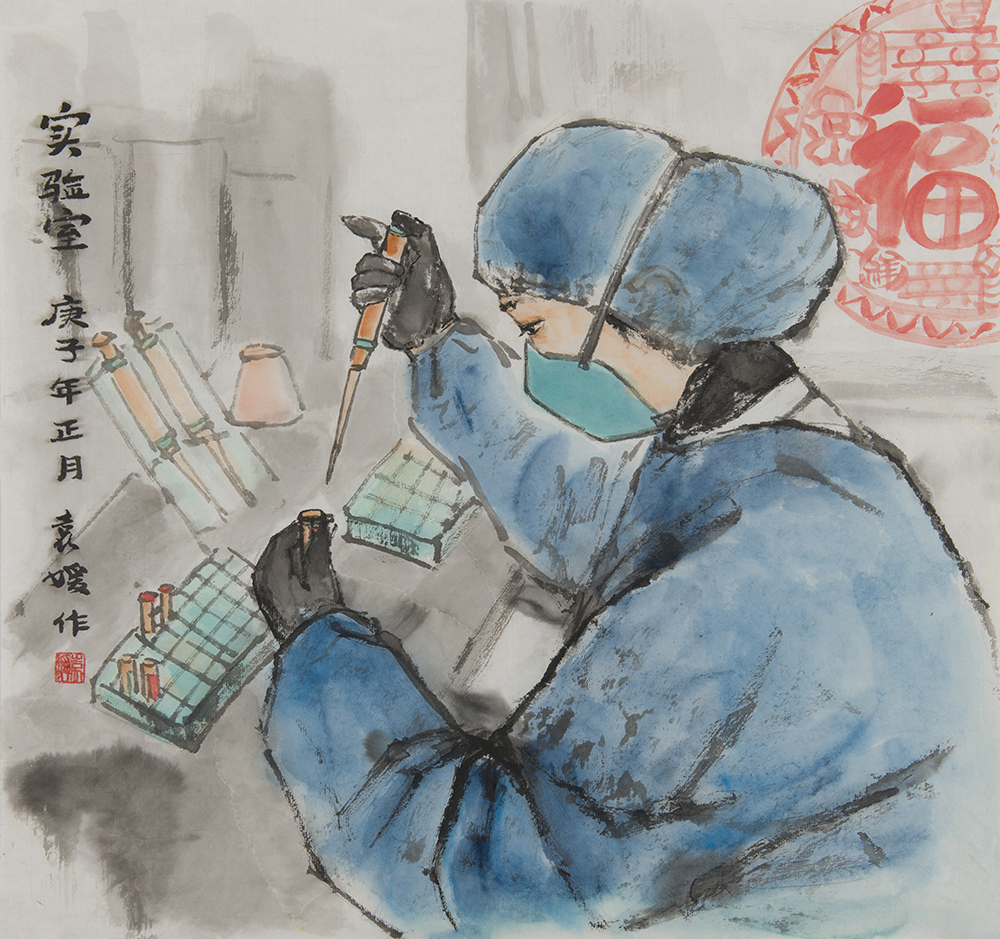 福
实验室 庚子年正月 袁媛作